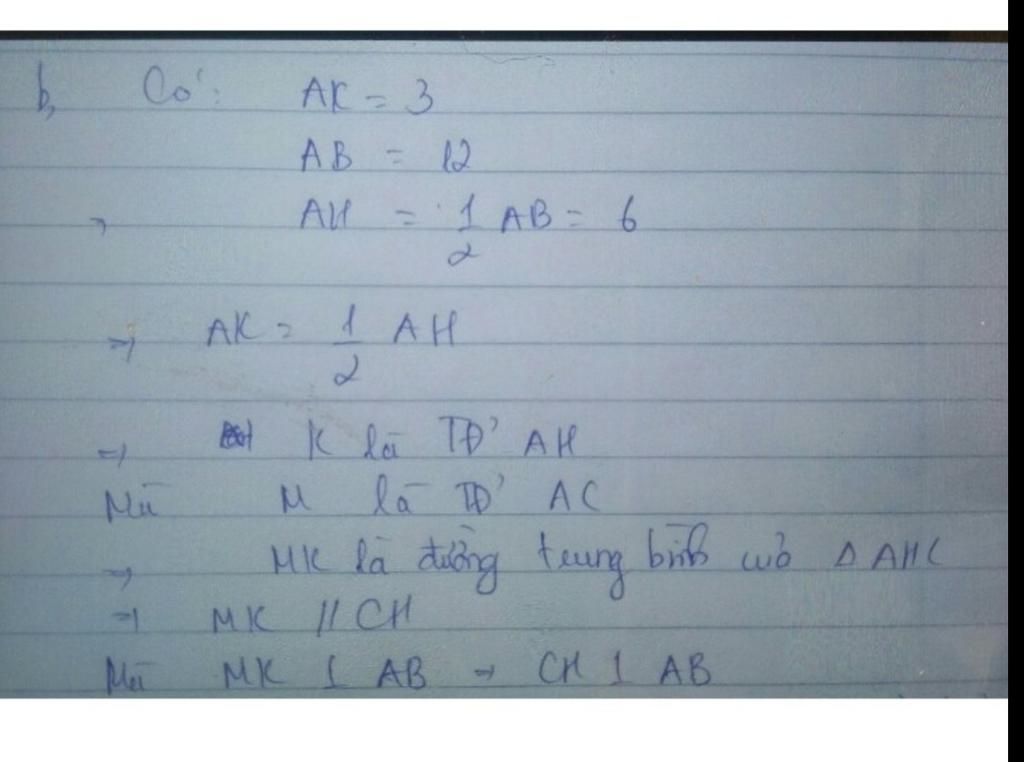 b, Có: AK = 3
AB = 12
→ AH = 1/2 AB = 6
⇒ AK = 1/2 AH
⇒ K là TĐ' AH
Mà M là TĐ' AC
⇒ MK là đường trung bình của Δ AHC
⇒ MK // CH
Mà MK ⊥ AB → CH ⊥ AB